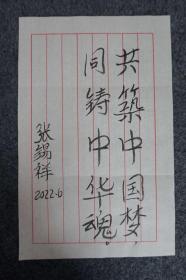 共築中国梦，
同铸中华魂。
张锡祥
2022.6